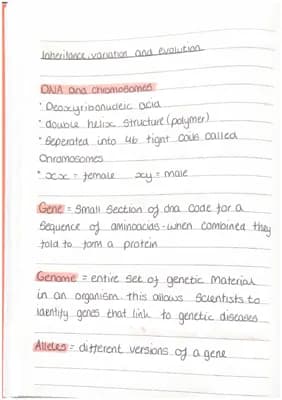 Inheritance, variation and evolution
DNA and chromosomes
• Deoxyribonucleic acid
• double helix structure (polymer)
• Seperated into 46 tight coils called
Chromosomes
• xx = female xy = male
Gene = Small section of dna code for a
sequence of aminoacids - when combined they
fold to form a protein
Genome = entire set of genetic material
in an organism. this allows scientists to
identify genes that link to genetic diseases
Alleles = different versions of a gene